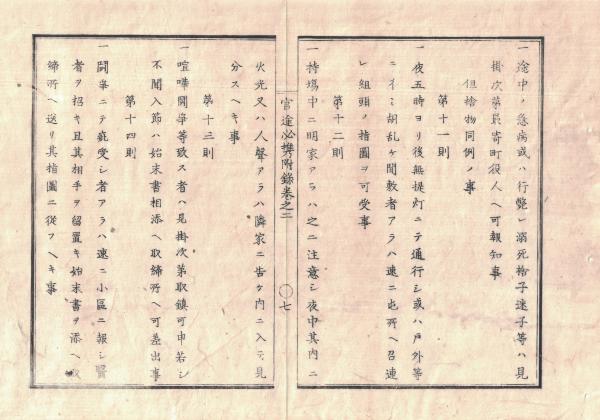 一 途中ノ急病或ハ行斃レ溺死捨子迷子等ハ見
掛次第最寄町役人ヘ可報知事
但捨物同例ノ事
第十一則
一 夜五時ヨリ後無提灯ニテ通行シ或ハ戸外等
ニ彳ミ胡乱ケ間敷者アラハ速ニ屯所ヘ召連
レ組頭ノ指圖ヲ可受事
第十二則
一 持場中ニ明家アラハ之ニ注意シ夜中其内ニ
官途必携附錄巻之二
〇七
火光又ハ人聲アラハ隣家ニ告ケ内ニ入テ見
分スヘキ事
第十三則
一 喧嘩鬪爭等致ス者ハ見掛次第取鎮可申若シ
不聞入節ハ始末書相添ヘ取締所ヘ可差出事
第十四則
一 鬪爭ニテ疵受シ者アラハ速ニ小區ニ報シ醫
者ヲ招キ且其相手ヲ留置キ始末書ヲ添ヘ取
締所ヘ送リ其指圖ニ從フヘキ事